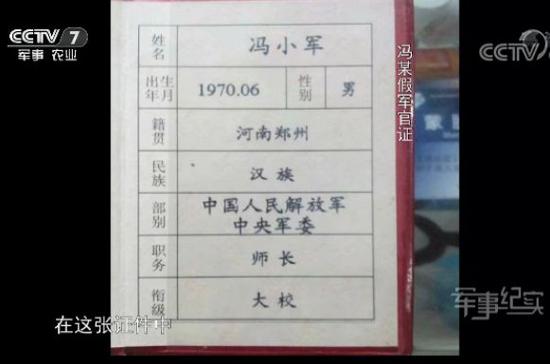 CCTV 7
军事·农业
CCTV
姓名 冯小军
出生年月 1970.06 性别 男
籍贯 河南郑州
民族 汉族
部别 中国人民解放军
中央军委
职务 师长
衔级 大校
冯某假军官证
军事纪实
在这张证件中